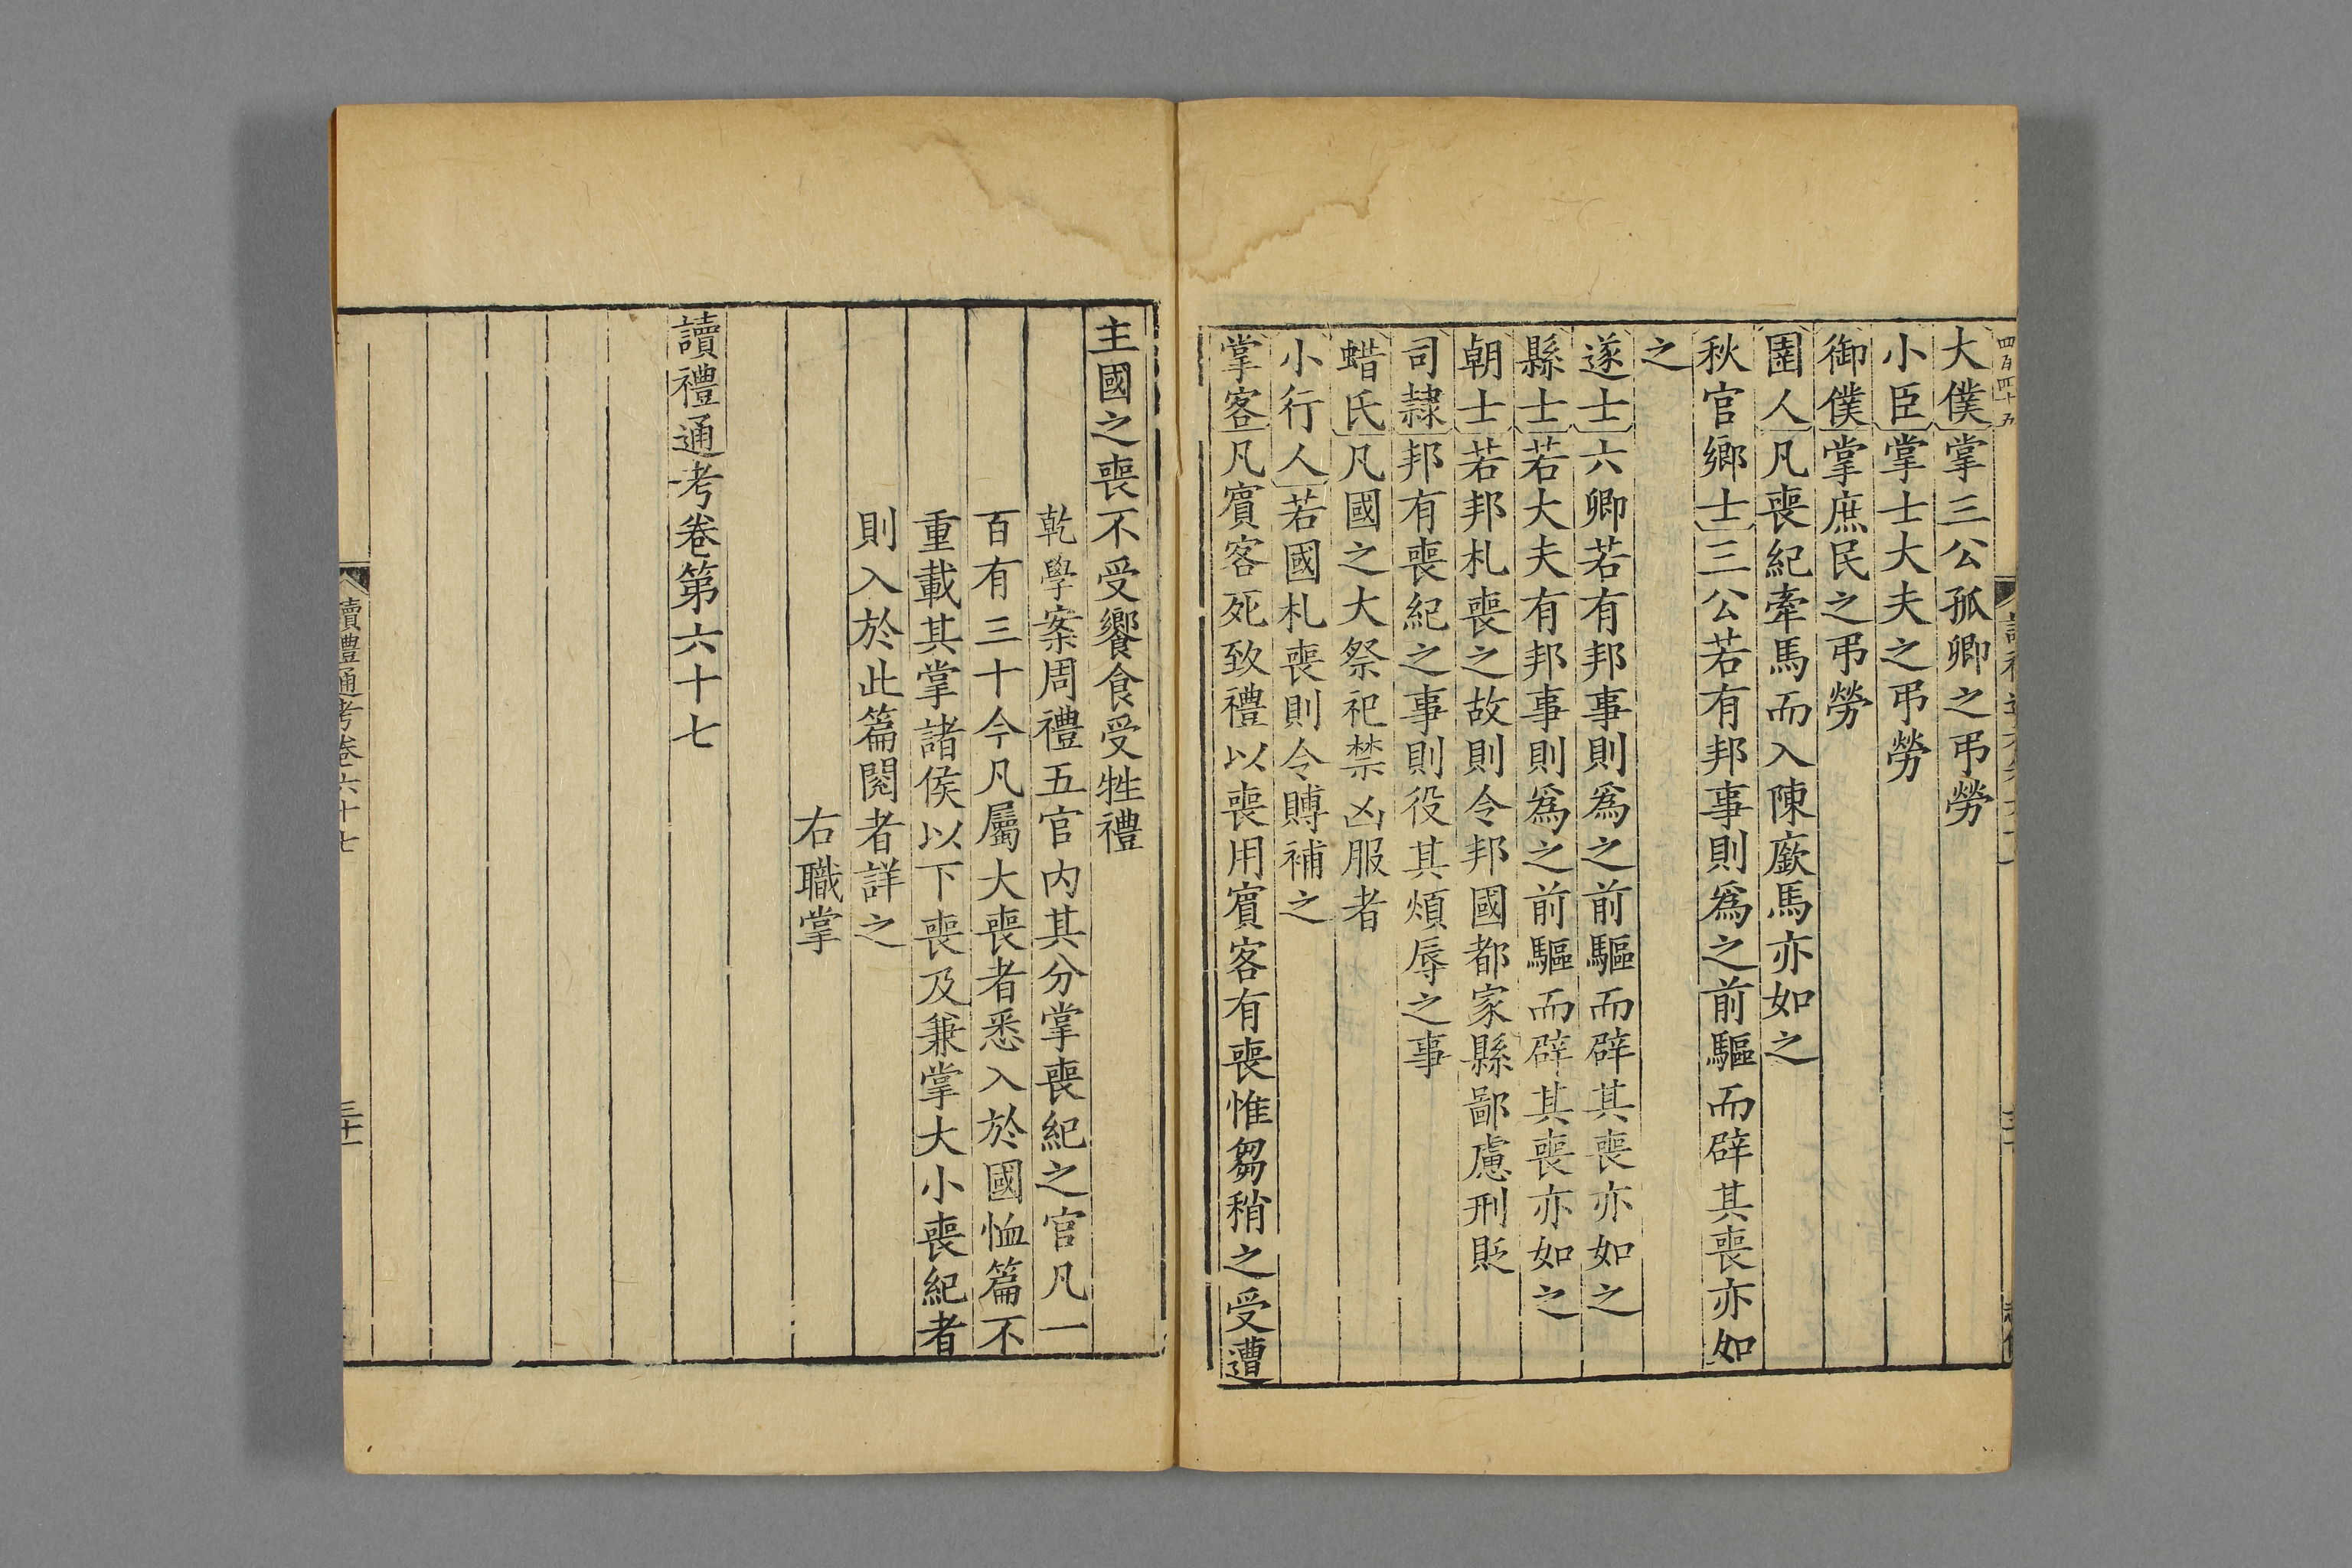 四百四十五
大僕掌三公孤卿之弔勞
小臣掌士大夫之弔勞
御僕掌庶民之弔勞
圉人凡喪紀牽馬而入陳廞馬亦如之
秋官鄉士三公若有邦事則爲之前驅而辟其喪亦如
之
遂士六卿若有邦事則爲之前驅而辟其喪亦如之
縣士若大夫有邦事則爲之前驅而辟其喪亦如之
朝士若邦札喪之故則令邦國都家縣鄙慮刑貶
司隸邦有喪紀之事則役其煩辱之事
蜡氏凡國之大祭祀禁凶服者
小行人若國札喪則令賻補之
掌客凡賓客死致禮以喪用賓客有喪惟芻稍之受遭
主國之喪不受饗食受牲禮
乾學案周禮五官內其分掌喪紀之官凡一
百有三十今凡屬大喪者悉入於國恤篇不
重載其掌諸侯以下喪及兼掌大小喪紀者
則入於此篇閱者詳之
右職掌
讀禮通考卷第六十七
讀禮通考卷六十七
三十一